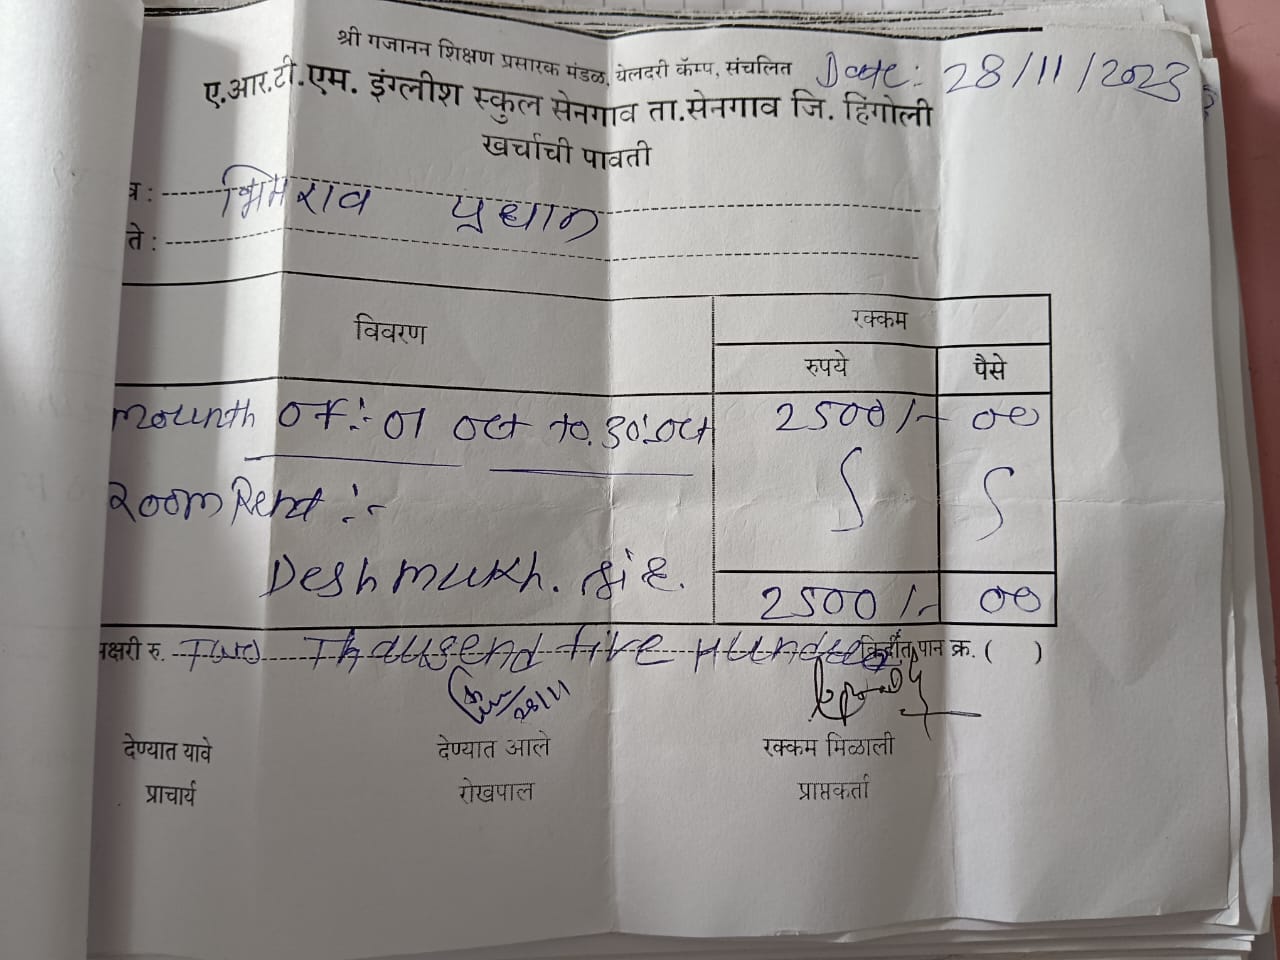 श्री गजानन शिक्षण प्रसारक मंडळ, येलदरी कॅम्प, संचलित Date: 28/11/2023
ए.आर.टी.एम. इंग्लीश स्कुल सेनगाव ता.सेनगाव जि. हिंगोली
खर्चाची पावती
त्र : भिमराव प्रधान
ते :
विवरण रक्कम
रुपये पैसे
mounth of :- 01 oct to. 30.oct 2500/- 00
Room Rend :-
Deshmukh. सर.
2500/- 00
क्षरी रु. Two Thausend five Hundred किर्दीत पान क्र. ( )
28/11
देण्यात यावे देण्यात आले रक्कम मिळाली
प्राचार्य रोखपाल प्राप्तकर्ता